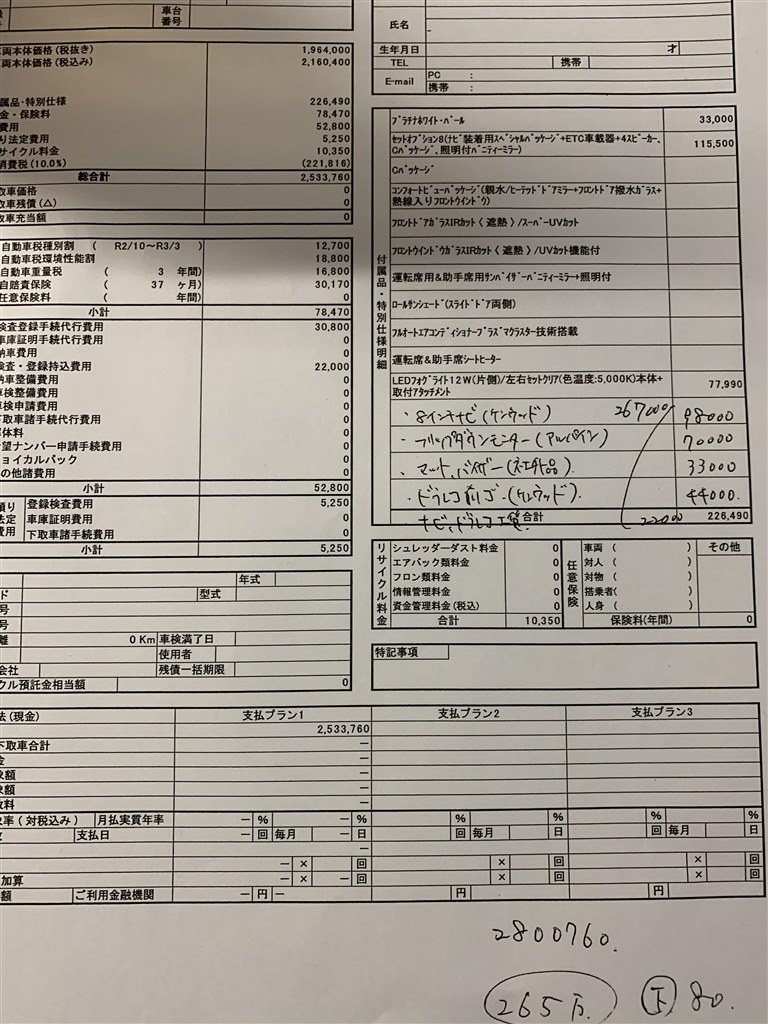 車台
番号
両本体価格(税抜き) 1,964,000
両本体価格(税込み) 2,160,400
属品・特別仕様 226,490
金・保険料 78,470
費用 52,800
り法定費用 5,250
サイクル料金 10,350
消費税(10.0%) (221,816)
総合計 2,533,760
取車価格 0
取車残債(△) 0
取車充当額 0
自動車税種別割 ( R2/10~R3/3 ) 12,700
自動車税環境性能割 18,800
自動車重量税 ( 3 年間) 16,800
自賠責保険 ( 37 ヶ月) 30,170
任意保険料 ( 年間) 0
小計 78,470
検査登録手続代行費用 30,800
車庫証明手続代行費用 0
納車費用 0
検査・登録持込費用 22,000
納車整備費用 0
車検整備費用 0
車検申請費用 0
下取車諸手続代行費用 0
料 0
望ナンバー申請手続費用 0
ョイカルパック 0
の他諸費用 0
小計 52,800
預り
法定
費用
登録検査費用 5,250
車庫証明費用 0
下取車諸手続費用 0
小計 5,250
年式
ド 型式
号
号
離 0 Km 車検満了日
使用者
会社 残債一括期限
クル預託金相当額 0
氏名
生年月日 才
TEL 携帯
E-mail PC :
携帯 :
付属品・特別仕様明細
プラチナホワイト・パール 33,000
セットオプション8(ナビ装着用スペシャルパッケージ+ETC車載器+4スピーカー、Cパッケージ、照明付バニティーミラー) 115,500
Cパッケージ
コンフォートビューパッケージ(親水/ヒーテッドドアミラー+フロントドア撥水ガラス+
熱線入りフロントウインドウ)
フロントドアガラスIRカット〈遮熱〉/スーパーUVカット
フロントウインドウガラスIRカット〈遮熱〉/UVカット機能付
運転席用&助手席用サンバイザーバニティーミラー+照明付
ロールサンシェード(スライドドア両側)
フルオートエアコンディショナープラズマクラスター技術搭載
運転席&助手席シートヒーター
LEDフォグライト12W(片側)/左右セットクリア(色温度:5,000K)本体+
取付アタッチメント 77,990
・8インチナビ(ケンウッド) 267000 98000
・フリップダウンモニター(アルパイン) 70000
・マット、バイザー(ネエ品). 33000
・ドラレコ前ゴ.(ケンウッド). 44000.
ナビ、ドラレコ工賃. 22000
合計 226,490
リサイクル料金
シュレッダーダスト料金 0
エアバック類料金 0
フロン類料金 0
情報管理料金 0
資金管理料金(税込) 0
合計 10,350
任意保険
車両 ( ) その他
対人 ( )
対物 ( )
搭乗者( )
人身 ( )
保険料(年間) 0
特記事項
法(現金) 支払プラン1 支払プラン2 支払プラン3
2,533,760
下取車合計 ー
金 ー
額 ー
額 ー
数料 ー
率(対税込み) 月払実質年率 ー % ー % % % % %
支払日 ー 回 毎月 ー 日 回 毎月 日 回 毎月 日
ー
ー × 回 × 回 × 回
加算 ー × ー 回 × 回 × 回
額 ご利用金融機関 ー 円 ー 円 円
2800760.
265万. 下 80.